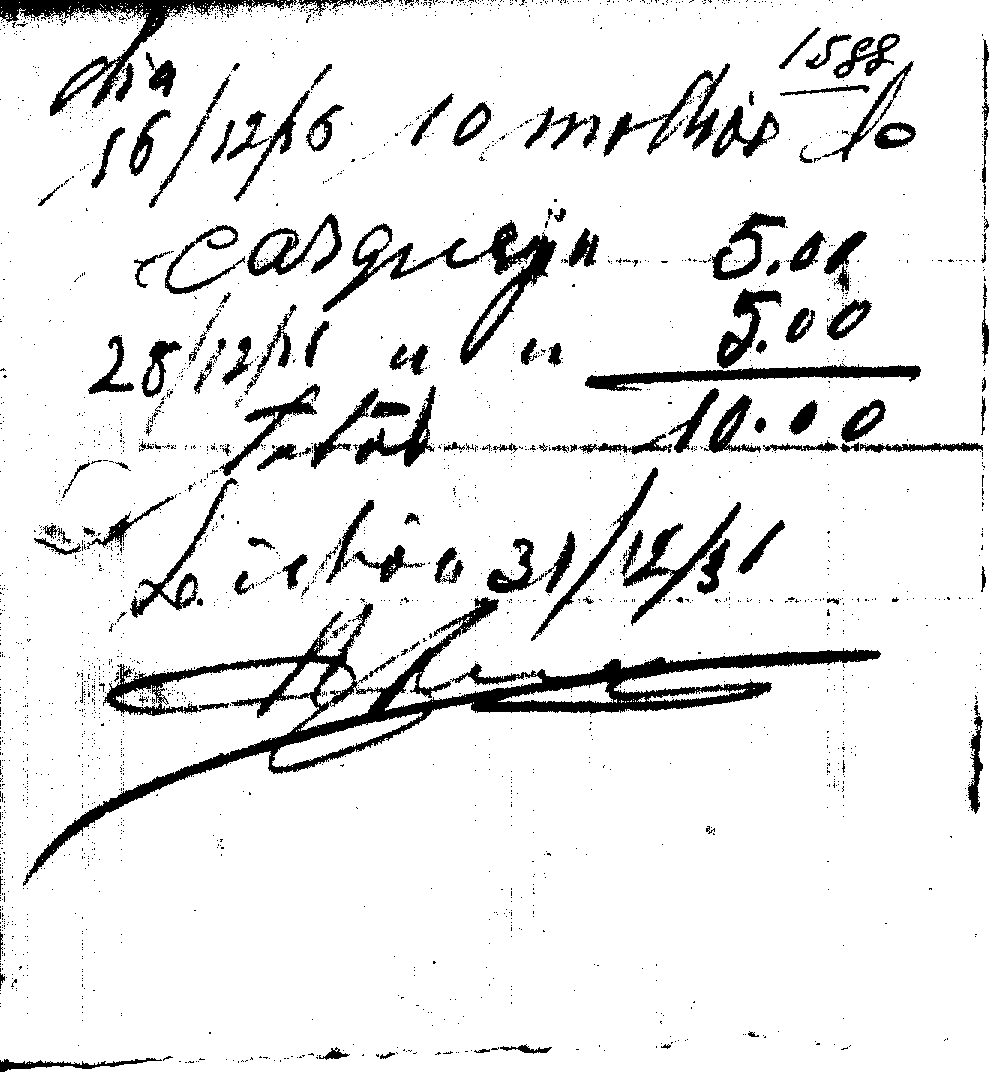 1588
dia
16/12/16 10 molhos de
Carqueija 5.00
28/12/16 " " 5.00
Total 10.00
Lisboa 31/12/31